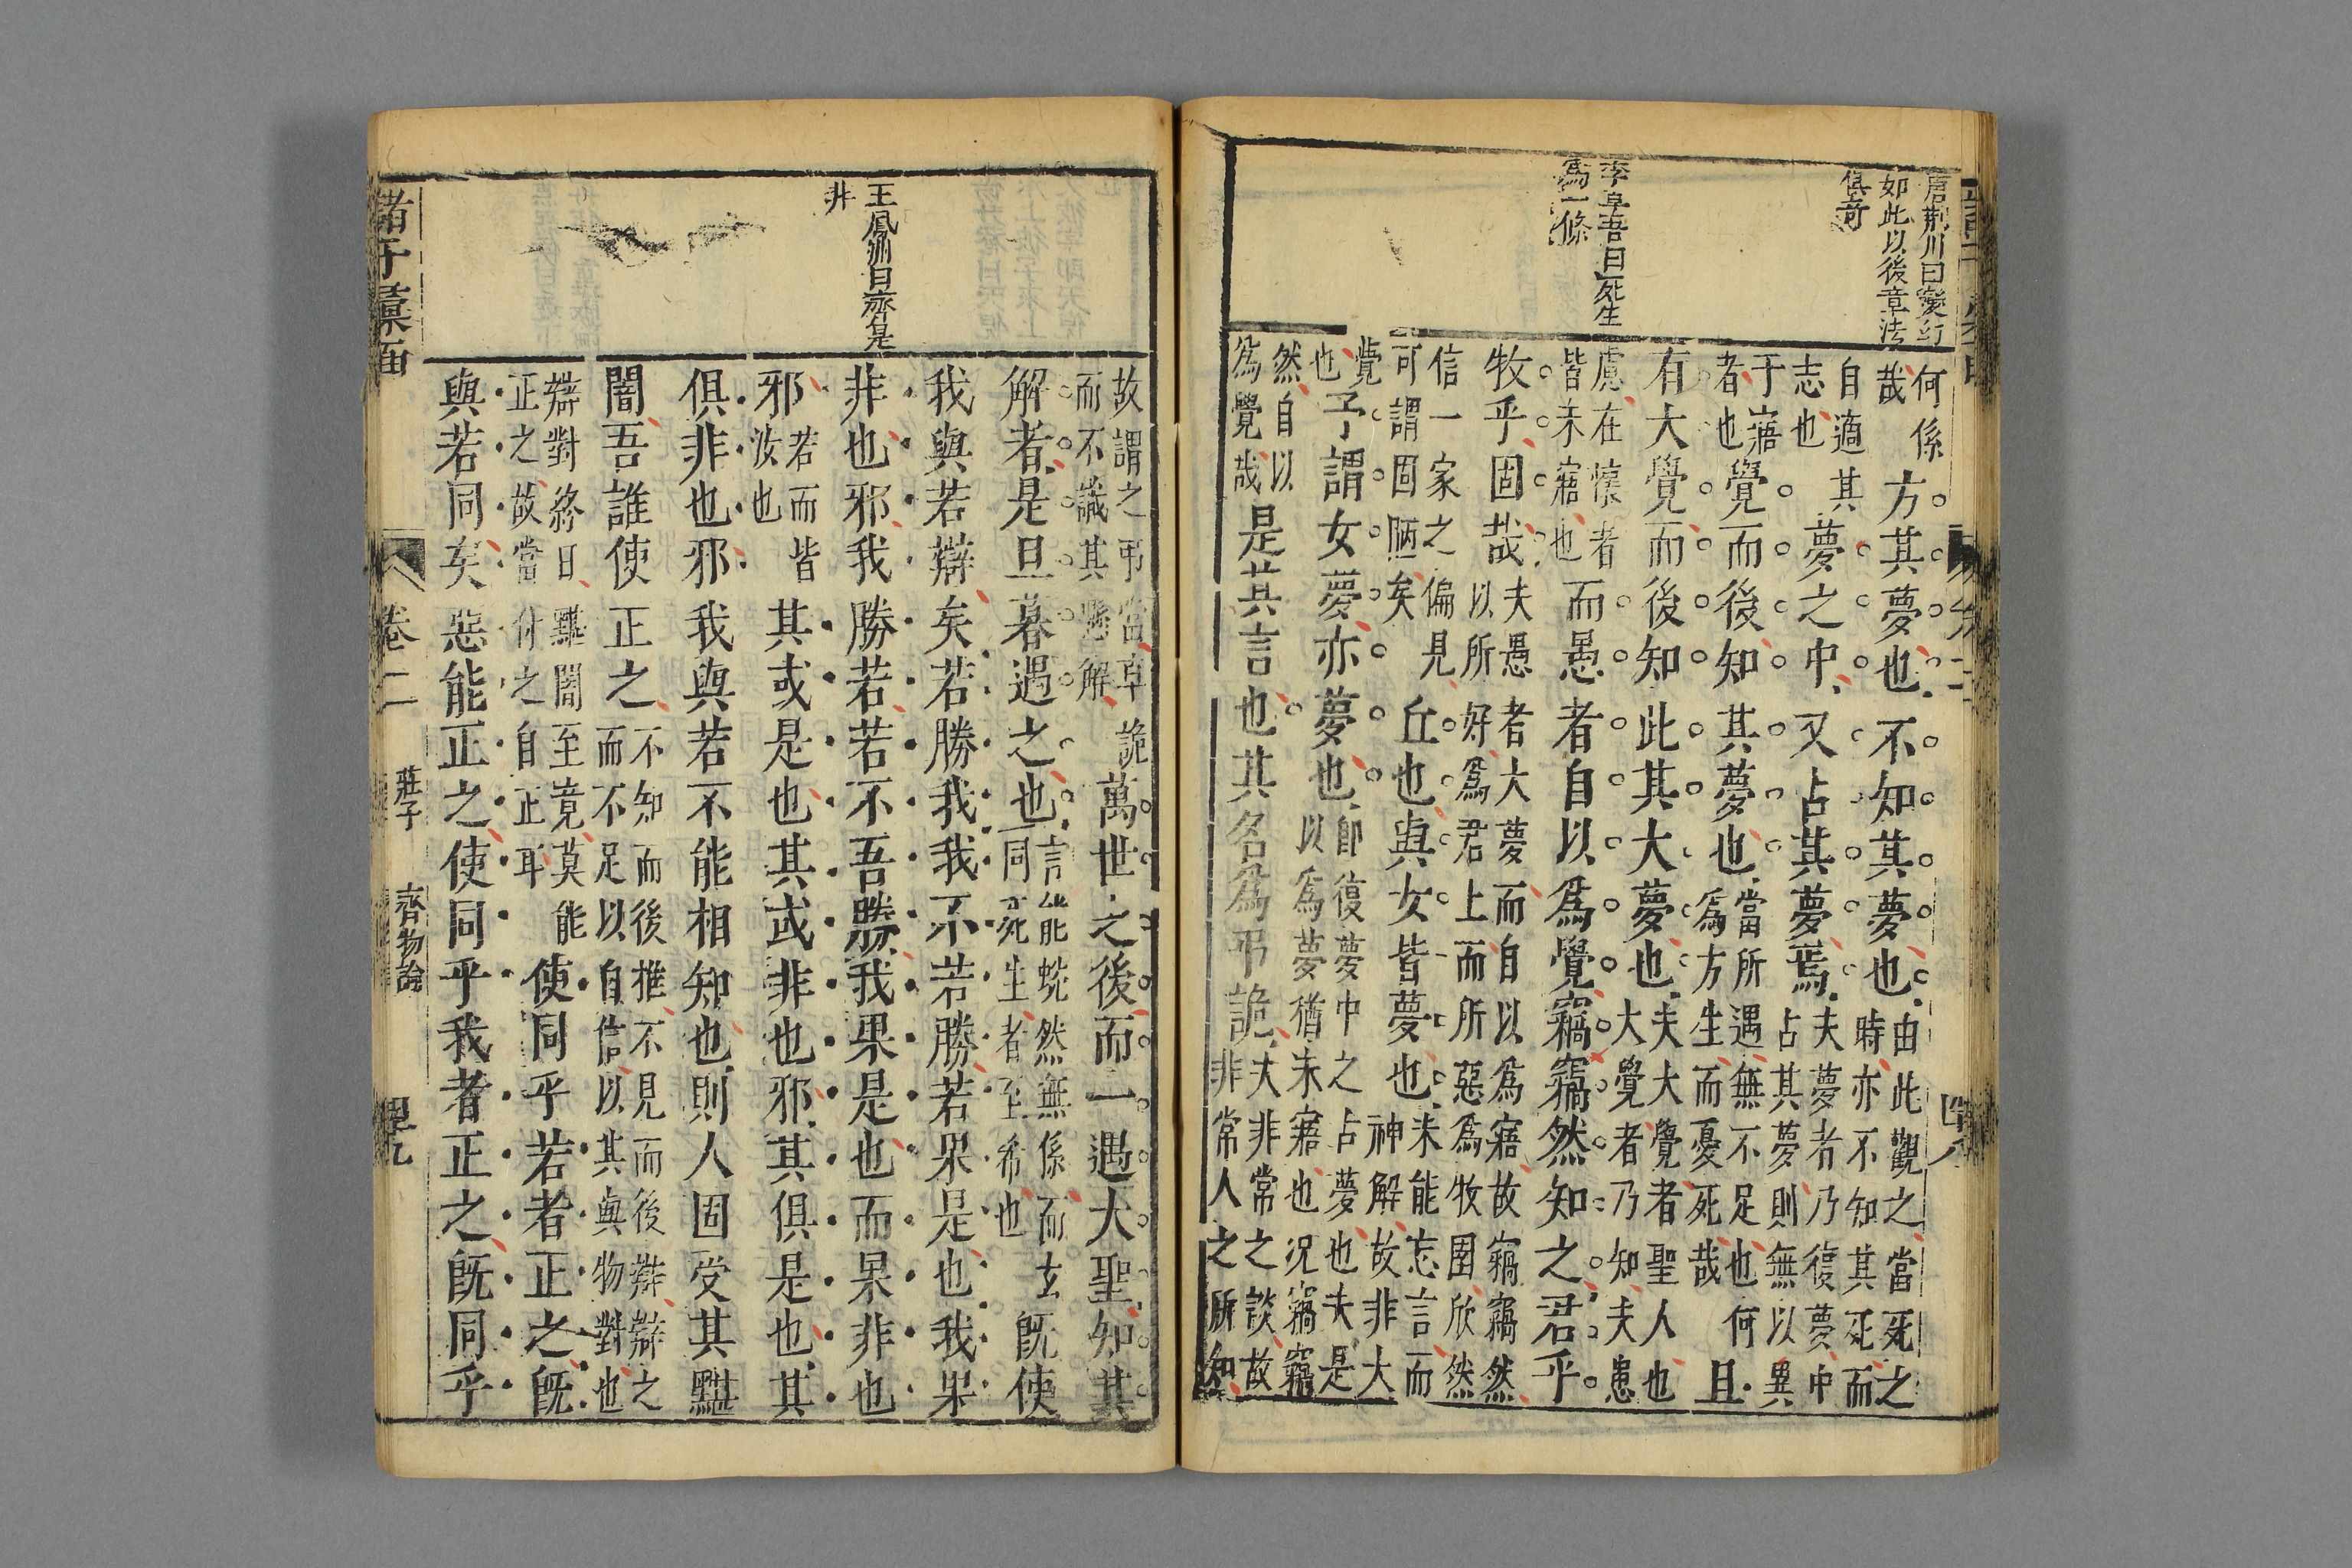 唐荊川曰變幻
如此以後章法
俱奇
李卓吾曰死生
為一條
何係
哉
方其夢也不知其夢也
由此觀之當死之
時亦不知其死而
自適其
志也
夢之中又占其夢焉
夫夢者乃復夢中
占其夢則無以異
于寤
者也
覺而後知其夢也
當所遇無不足也何
為方生而憂死哉
且
有大覺而後知此其大夢也
夫大覺者聖人也
大覺者乃知夫患
慮在懷者
皆未寤也
而愚者自以為覺竊竊然知之君乎
牧乎固哉
夫愚者大夢而自以為寤故竊竊然
以所好為君上而所惡為牧圉欣然
信一家之偏見
可謂固陋矣
丘也與女皆夢也
未能忘言而
神解故非大
覺
也
予謂女夢亦夢也
即復夢中之占夢也夫是
以為夢猶未寤也況竊竊
然自以
為覺哉
是其言也其名為弔詭
夫非常之談故
非常人之所知
王鳳洲曰齊是
非
故謂之弔當卓詭
而不識其懸解
萬世之後而一遇大聖知其
解者是旦暮遇之也
言能蛻然無係而玄
同死生者至希也
既使
我與若辯矣若勝我我不若勝若果是也我果
非也邪我勝若若不吾勝我果是也而果非也
邪
若而皆
汝也
其或是也其或非也邪其俱是也其
俱非也邪我與若不能相知也則人固受其黮
闇吾誰使正之
不知而後推不見而後辯辯之
而不足以自信以其與物對也
辯對終日黮闇至竟莫能
正之故當付之自正耳
使同乎若者正之既
與若同矣惡能正之使同乎我者正之既同乎
諸子彙函
卷二
莊子
齊物論